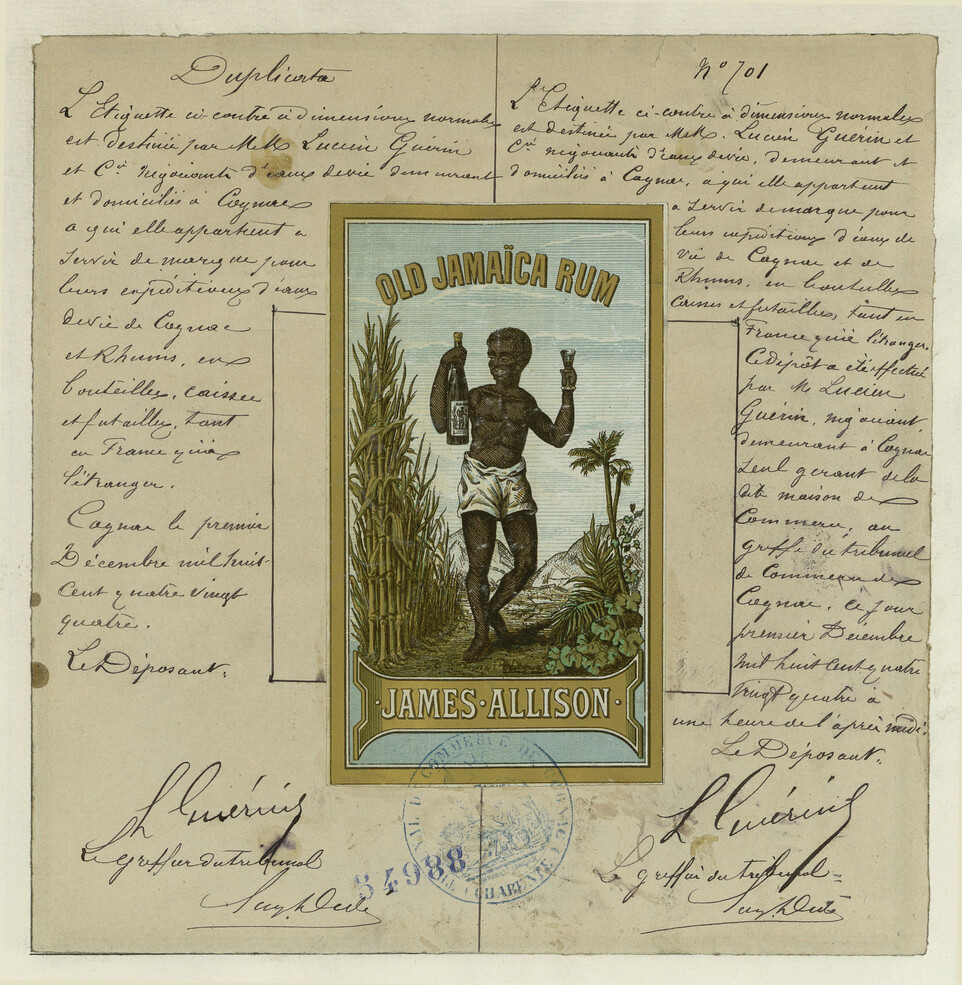 Duplicata
L'Etiquette ci-contre à dimensions normales
est destinée par M.M. Lucien Guérin
et Cie négociants d'eaux de vie demeurant
et domiciliés à Cognac
a qui elle appartient a
servir de marque pour
leurs expéditions d'eaux
de vie de Cognac
et Rhums, en
bouteilles, caisses
et futailles, tant
en France qu'à
l'étranger.
Cognac le premier
Décembre mil huit
cent quatre vingt
quatre.
Le Déposant.
L Guérin
Le greffier du tribunal
No 701
L'Etiquette ci-contre à dimensions normales
est destinée par M.M. Lucien Guérin et
Cie négociants d'eaux de vie, demeurant et
domiciliés à Cognac, a qui elle appartient
a servir de marque pour
leurs expéditions d'eaux de
vie de Cognac et de
Rhums, en bouteilles
caisses et futailles, tant en
France qu'à l'étranger.
Ce dépôt a été effectué
par M. Lucien
Guérin, négociant
demeurant à Cognac
seul gérant de la
dite maison de
Commerce, au
greffe du tribunal
de Commerce de
Cognac, ce jour
premier Décembre
mil huit cent quatre
vingt quatre à
une heure de l'après midi.
Le Déposant.
L Guérin
Le greffier du tribunal
OLD JAMAÏCA RUM
·JAMES·ALLISON·
COMMERCE DE COGNAC
CHARENTE
54988